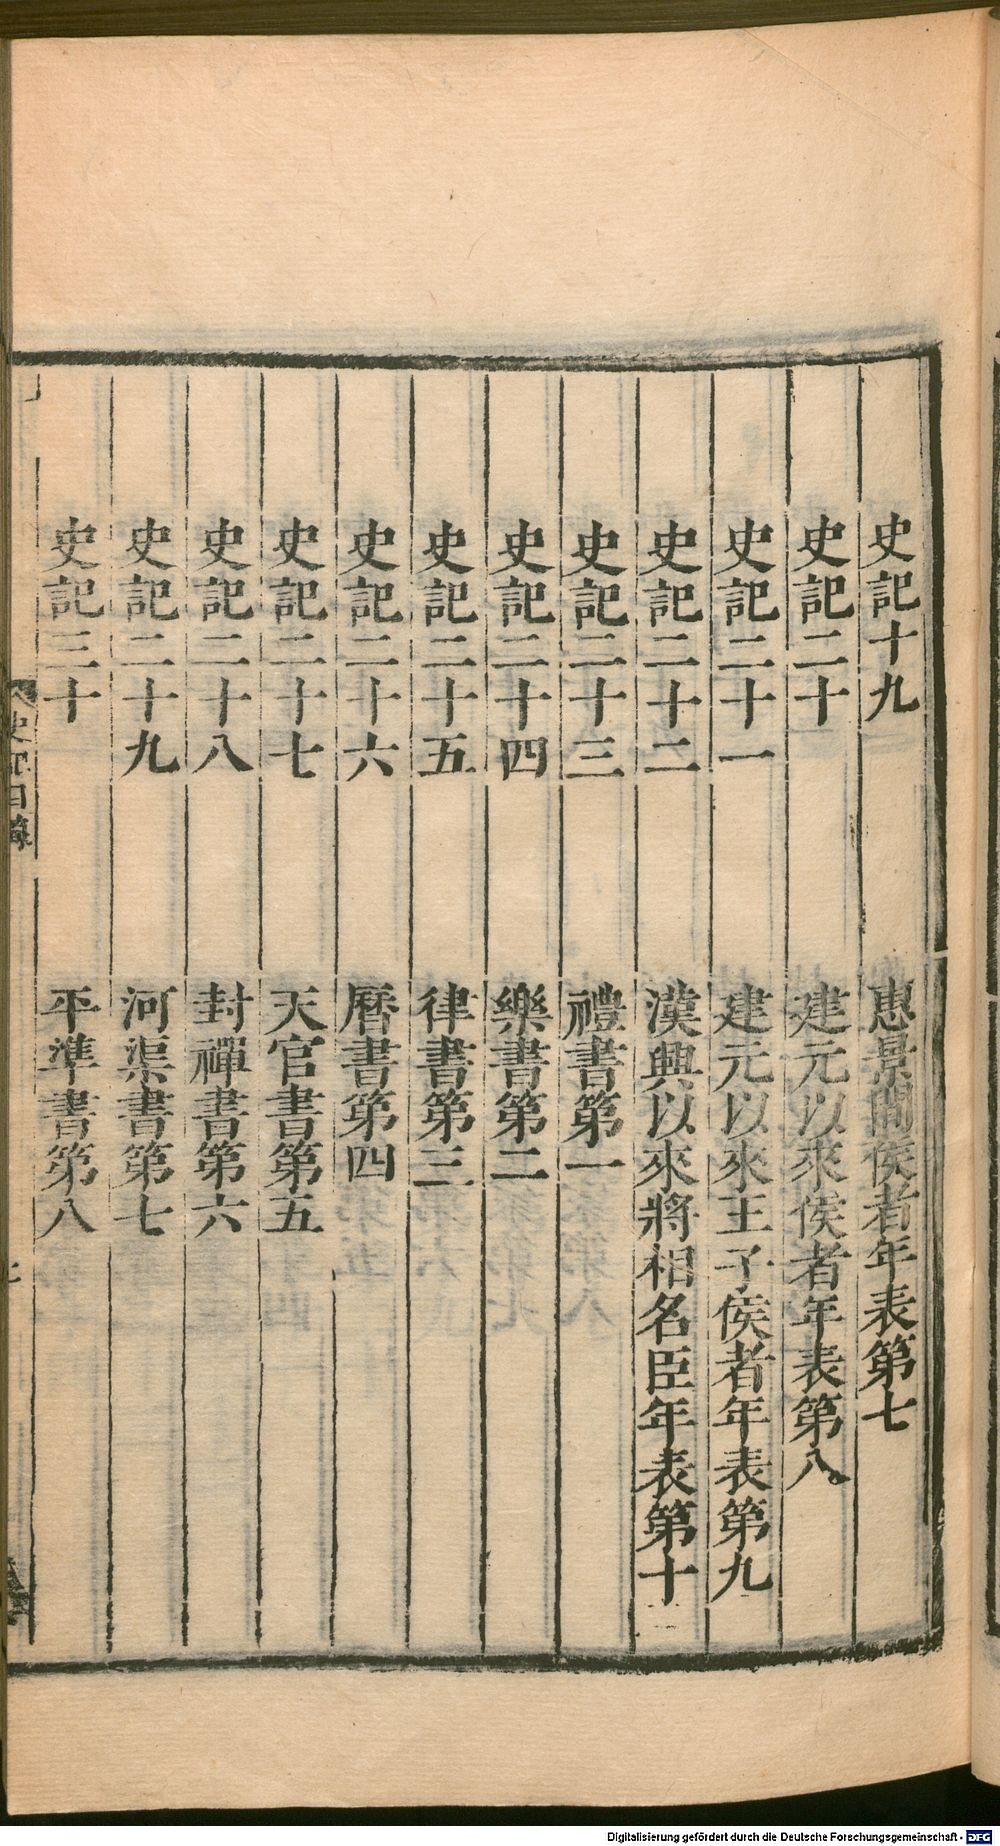 史記十九 惠景間侯者年表第七
史記二十 建元以來侯者年表第八
史記二十一 建元以來王子侯者年表第九
史記二十二 漢興以來將相名臣年表第十
史記二十三 禮書第一
史記二十四 樂書第二
史記二十五 律書第三
史記二十六 曆書第四
史記二十七 天官書第五
史記二十八 封禪書第六
史記二十九 河渠書第七
史記三十 平準書第八
史記目錄
Digitalisierung gefördert durch die Deutsche Forschungsgemeinschaft - DFG